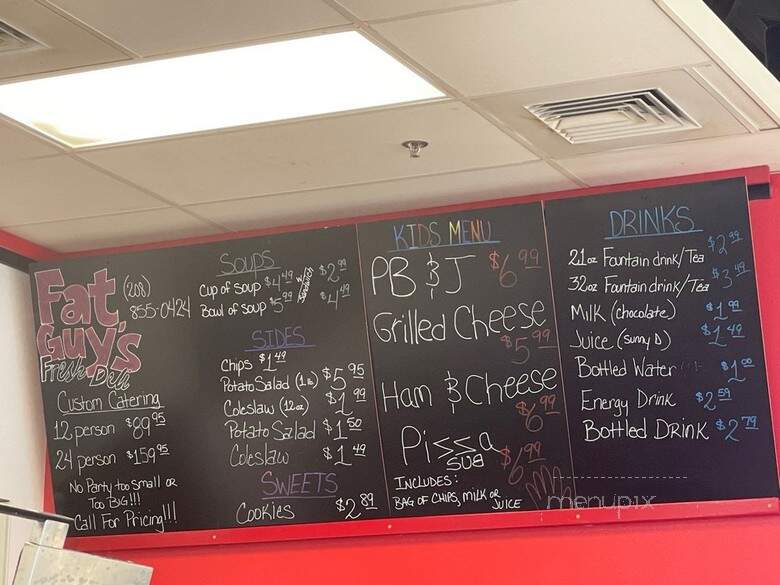 Fat
Guy's
Fresh Deli
(208)
855-0424
Custom Catering
12 person $89 95
24 person $159 95
No Party too small or
Too BIG!!!
Call For Pricing!!!
SOUPS
Cup of Soup $4 49 w/ Sandwich $2 99
Bowl of Soup $5 99 $4 49
SIDES
Chips $1 49
Potato Salad (1 lb) $5 95
Coleslaw (12oz) $1 99
Potato Salad $1 50
Coleslaw $1 49
SWEETS
Cookies $2 89
KIDS MENU
PB & J $6 99
Grilled Cheese
$5 99
Ham & Cheese
$6 99
Pizza
SUB $6 99
INCLUDES:
BAG OF CHIPS, MILK OR JUICE
DRINKS
21oz Fountain drink/Tea $2 99
32oz Fountain drink/Tea $3 49
Milk (chocolate) $1 99
Juice (Sunny D) $1 49
Bottled Water $1 00
Energy Drink $2 59
Bottled Drink $2 79
menupix